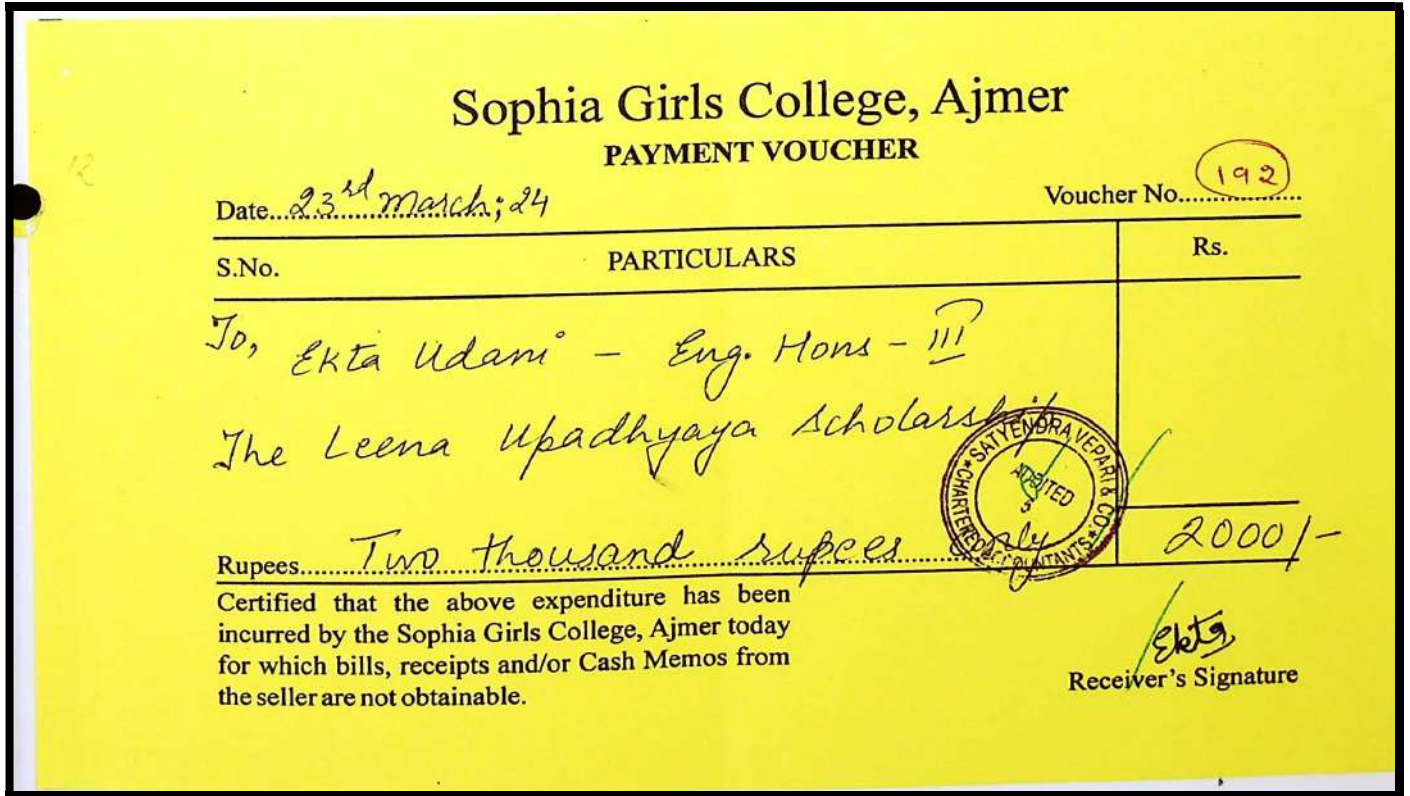 Sophia Girls College, Ajmer
PAYMENT VOUCHER
12
Date...23rd March; 24
Voucher No. 192
S.No. PARTICULARS Rs.
To, Ekta Udani - Eng. Hons - III
The Leena Upadhyaya Scholarship
SATYENDRA VEPARI & CO.
CHARTERED ACCOUNTANTS
AUDITED
Rupees Two thousand rupees only 2000/-
Certified that the above expenditure has been
incurred by the Sophia Girls College, Ajmer today
for which bills, receipts and/or Cash Memos from
the seller are not obtainable.
Ekta
Receiver's Signature